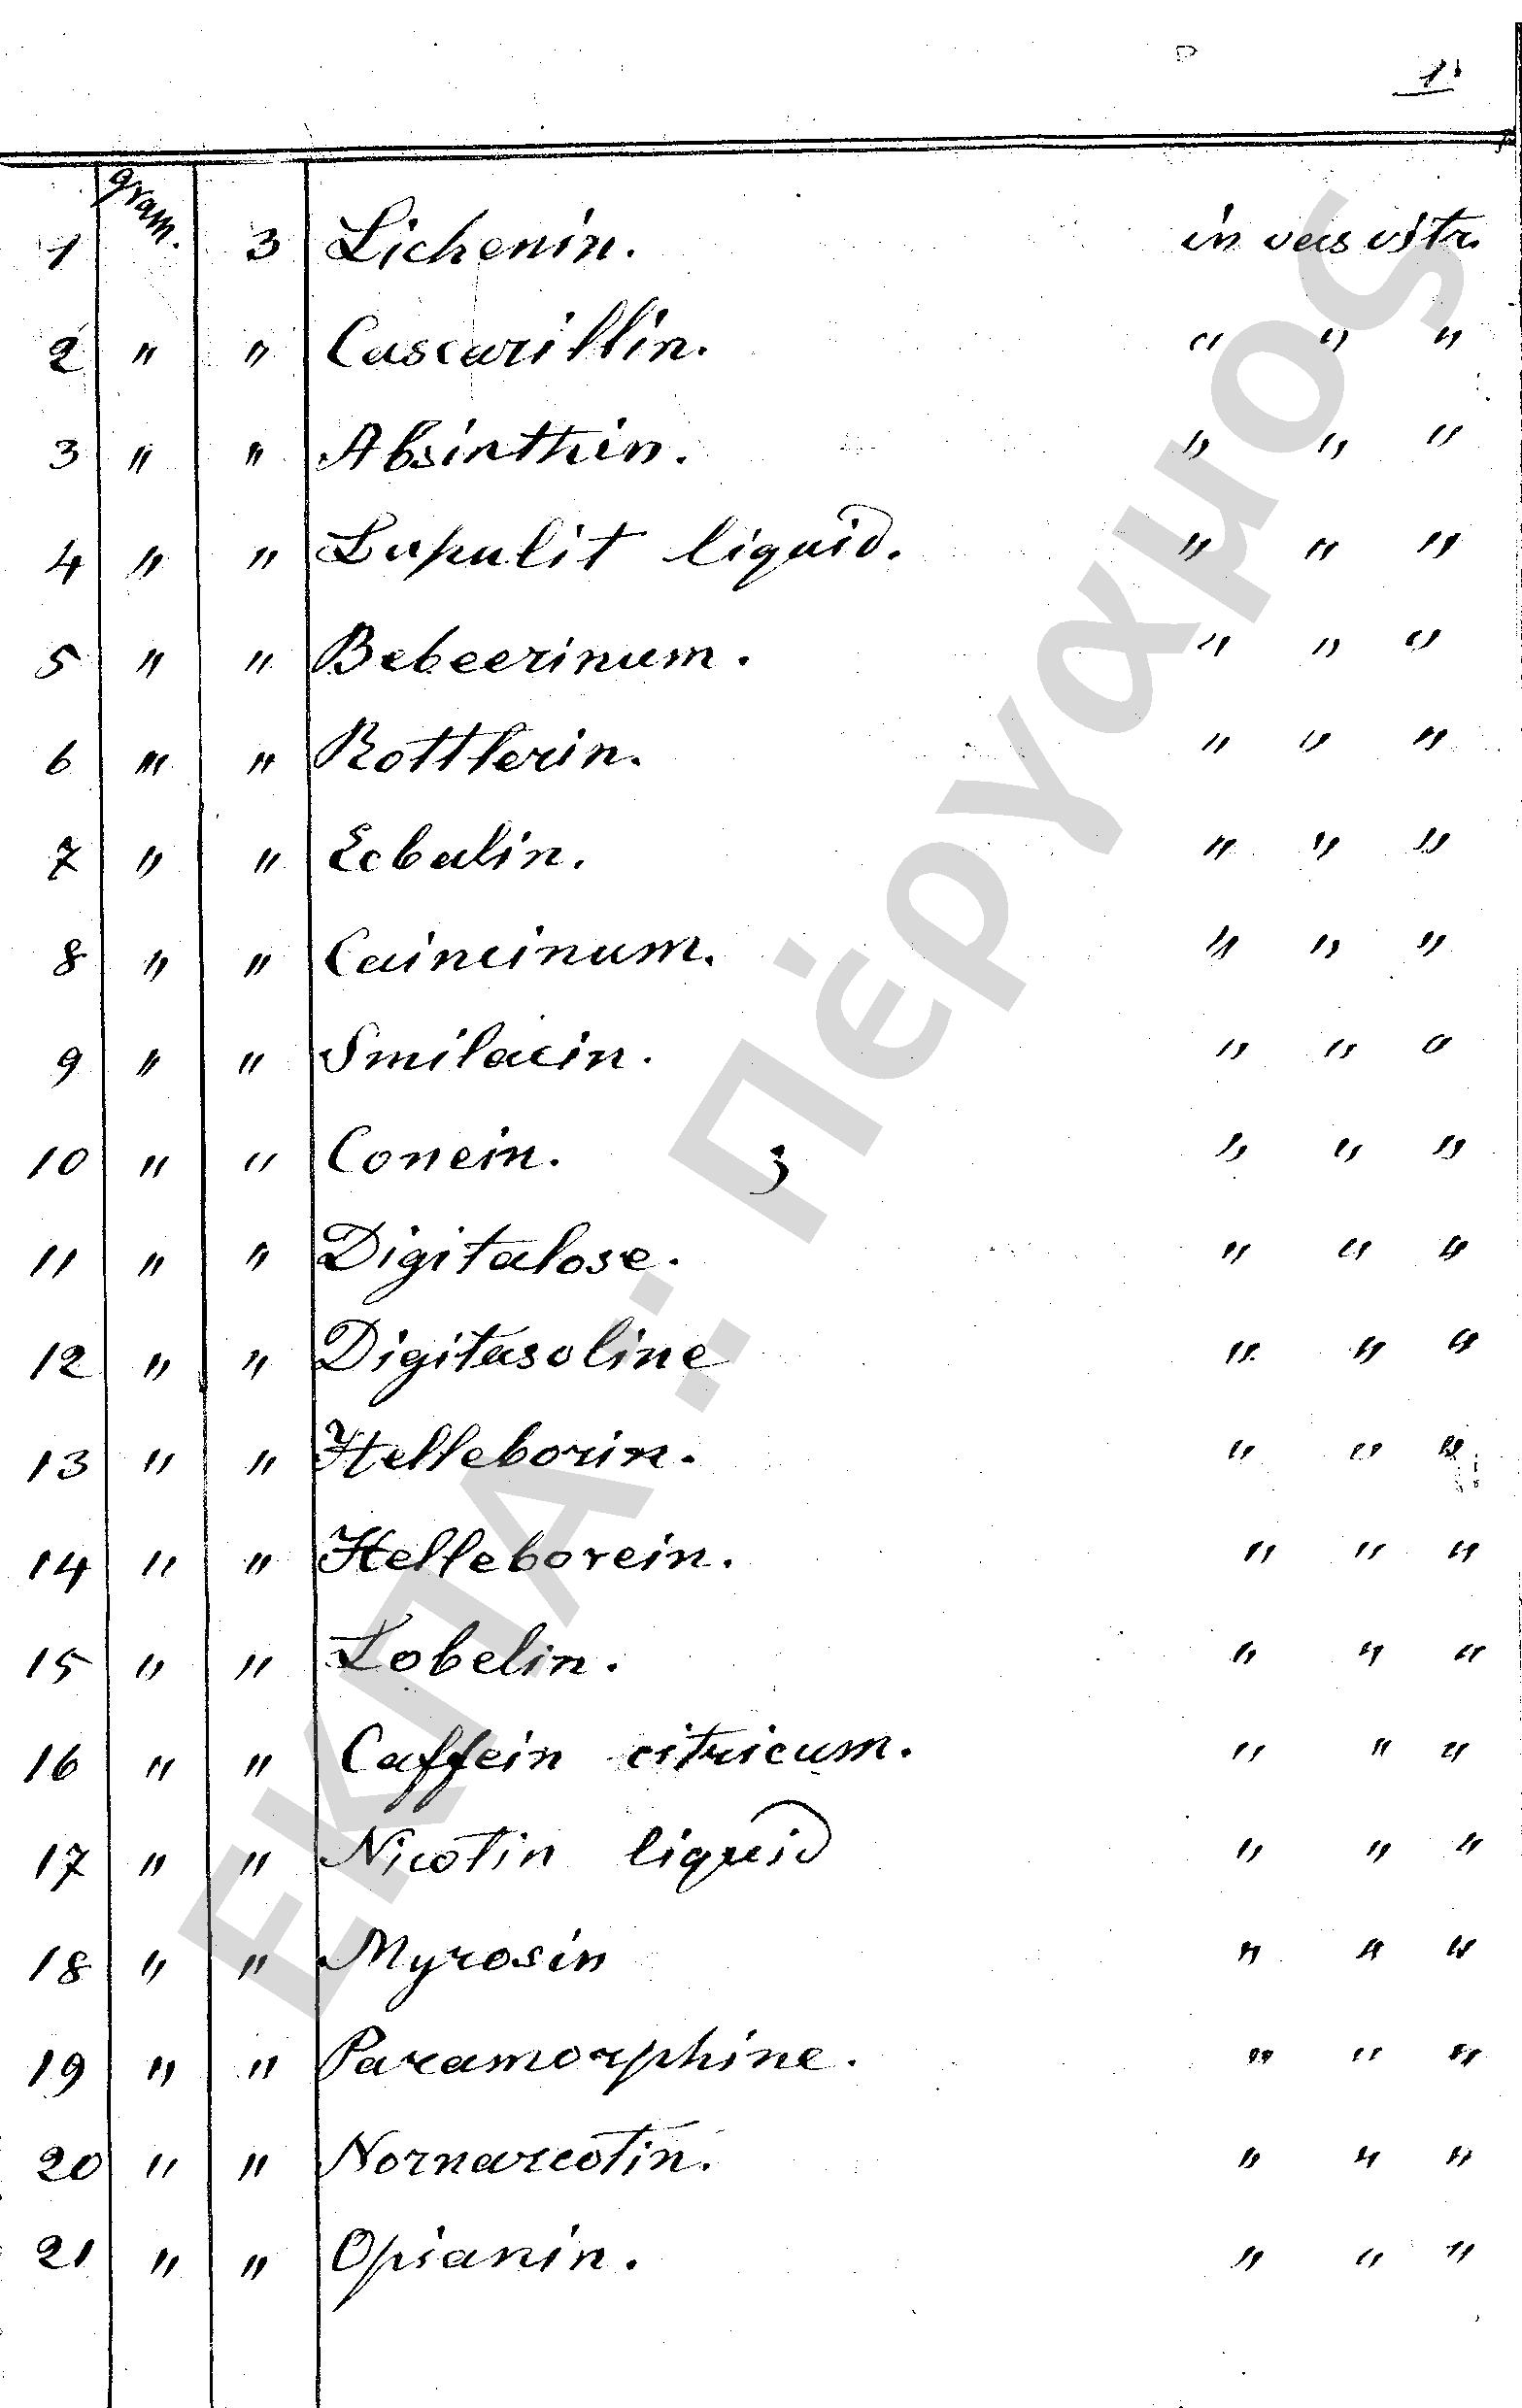 1.
1 gram. 3 Lichenin. in vas vitr.
2 " " Cascarillin. " " "
3 " " Absinthin. " " "
4 " " Lupulit liquid. " " "
5 " " Bebeerinum. " " "
6 " " Rottlerin. " " "
7 " " Ecbalin. " " "
8 " " Caincinum. " " "
9 " " Smilacin. " " "
10 " " Conein. 3 " " "
11 " " Digitalose. " " "
12 " " Digitasoline " " "
13 " " Helleborin. " " "
14 " " Helleborein. " " "
15 " " Lobelin. " " "
16 " " Caffein citricum. " " "
17 " " Nicotin liquid " " "
18 " " Myrosin " " "
19 " " Paramorphine. " " "
20 " " Nornarcotin. " " "
21 " " Opianin. " " "
ΕΚΠΑ : Πέργαμος